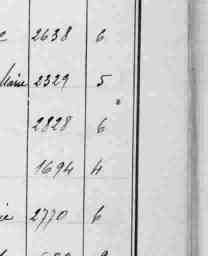 2638 6
Marie 2329 5
2828 6
1694 4
2770 6